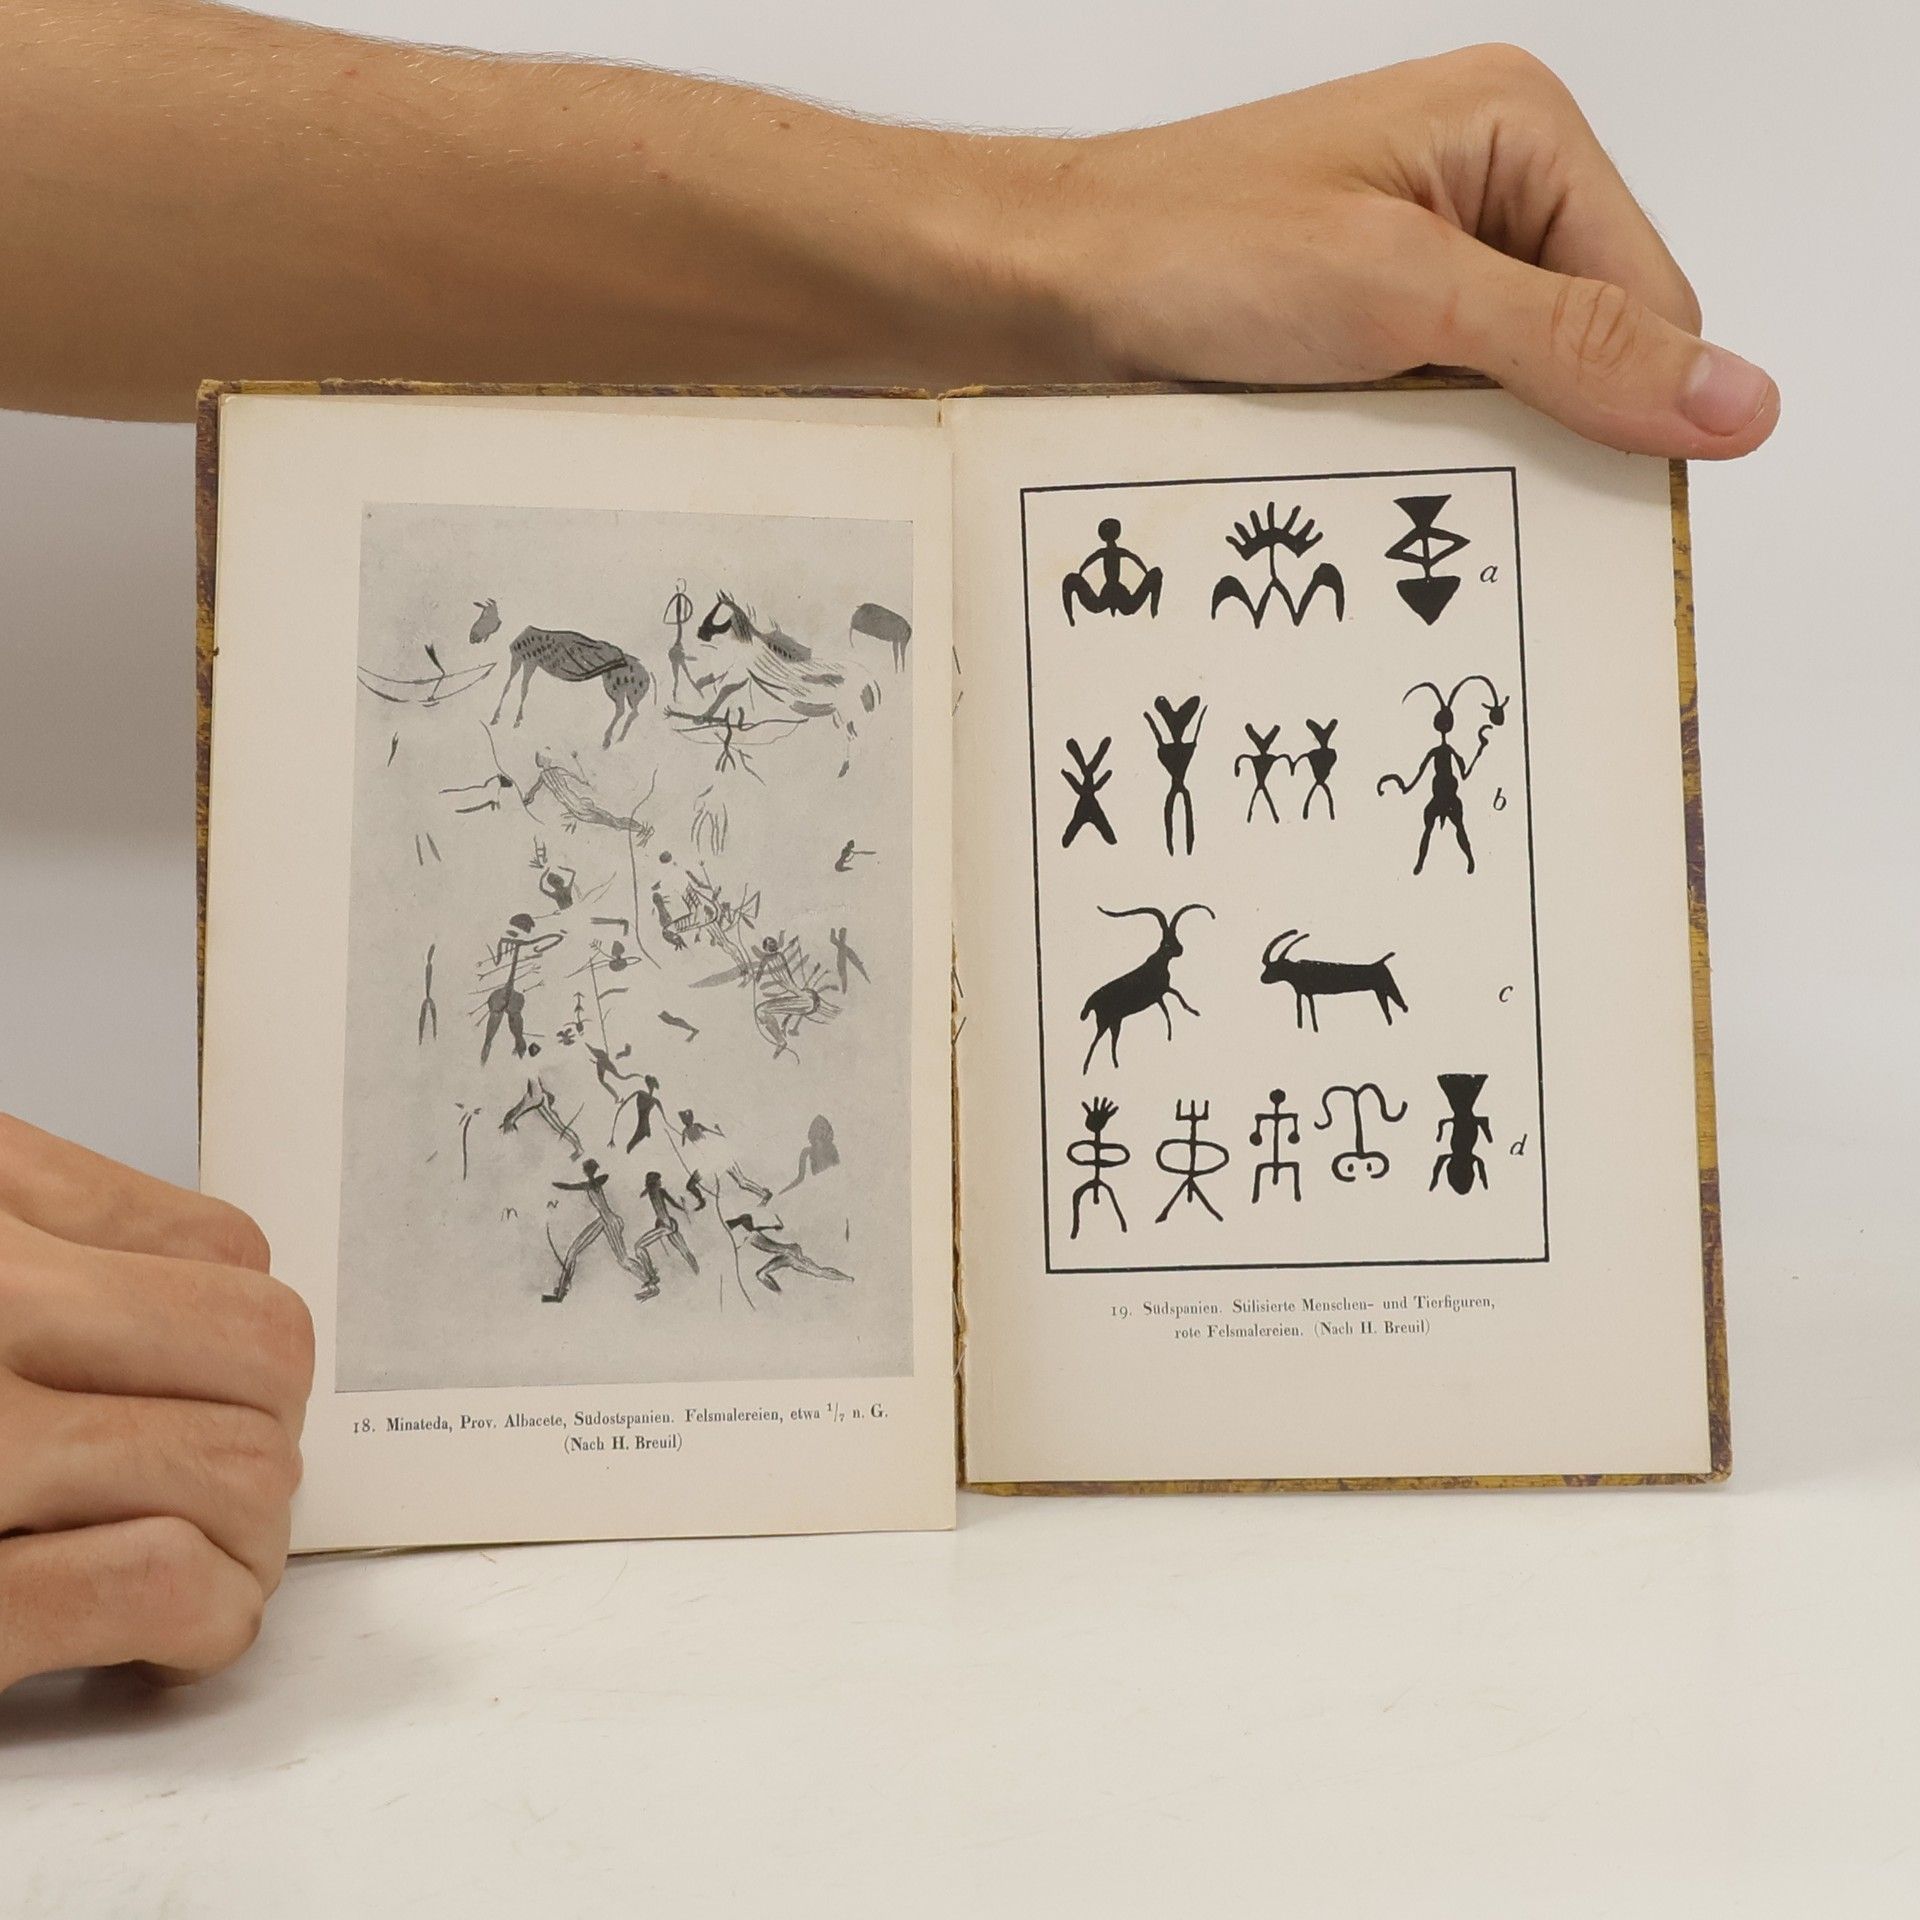 18. Minateda, Prov. Albacete, Südostspanien. Felsmalereien, etwa 1/7 n. G.
(Nach H. Breuil)
a
b
c
d
19. Südspanien. Stilisierte Menschen- und Tierfiguren,
rote Felsmalereien. (Nach H. Breuil)